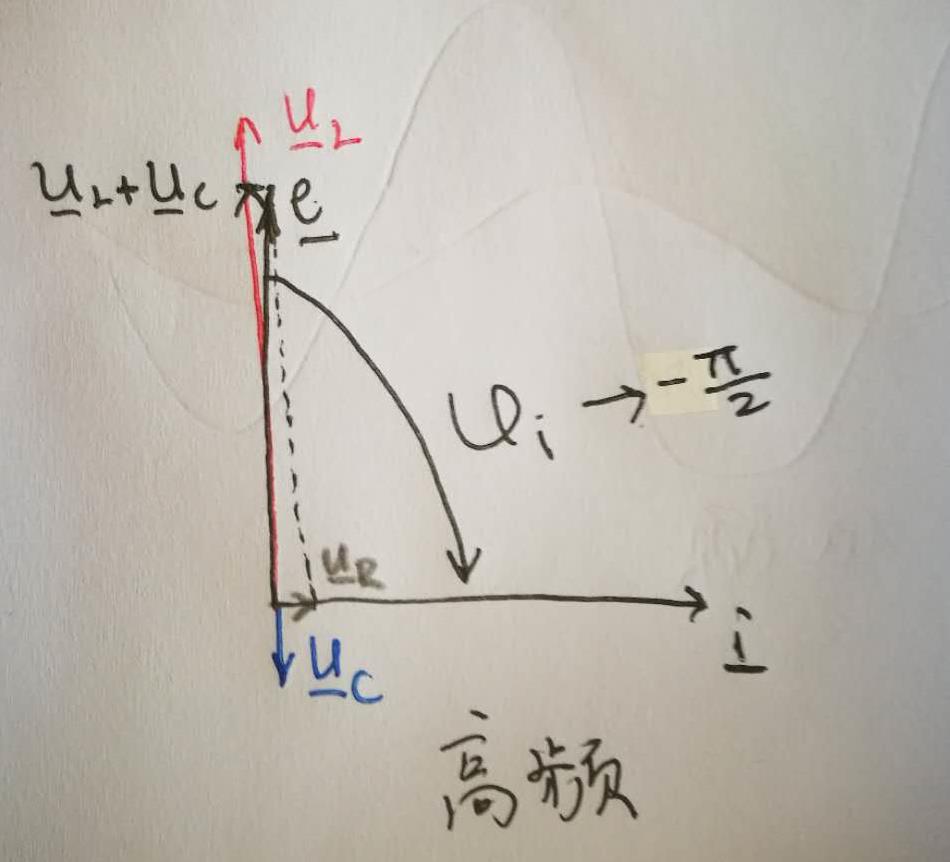 u_L
u_L+u_C e
φ_i → -π/2
u_R
i
u_C
高频